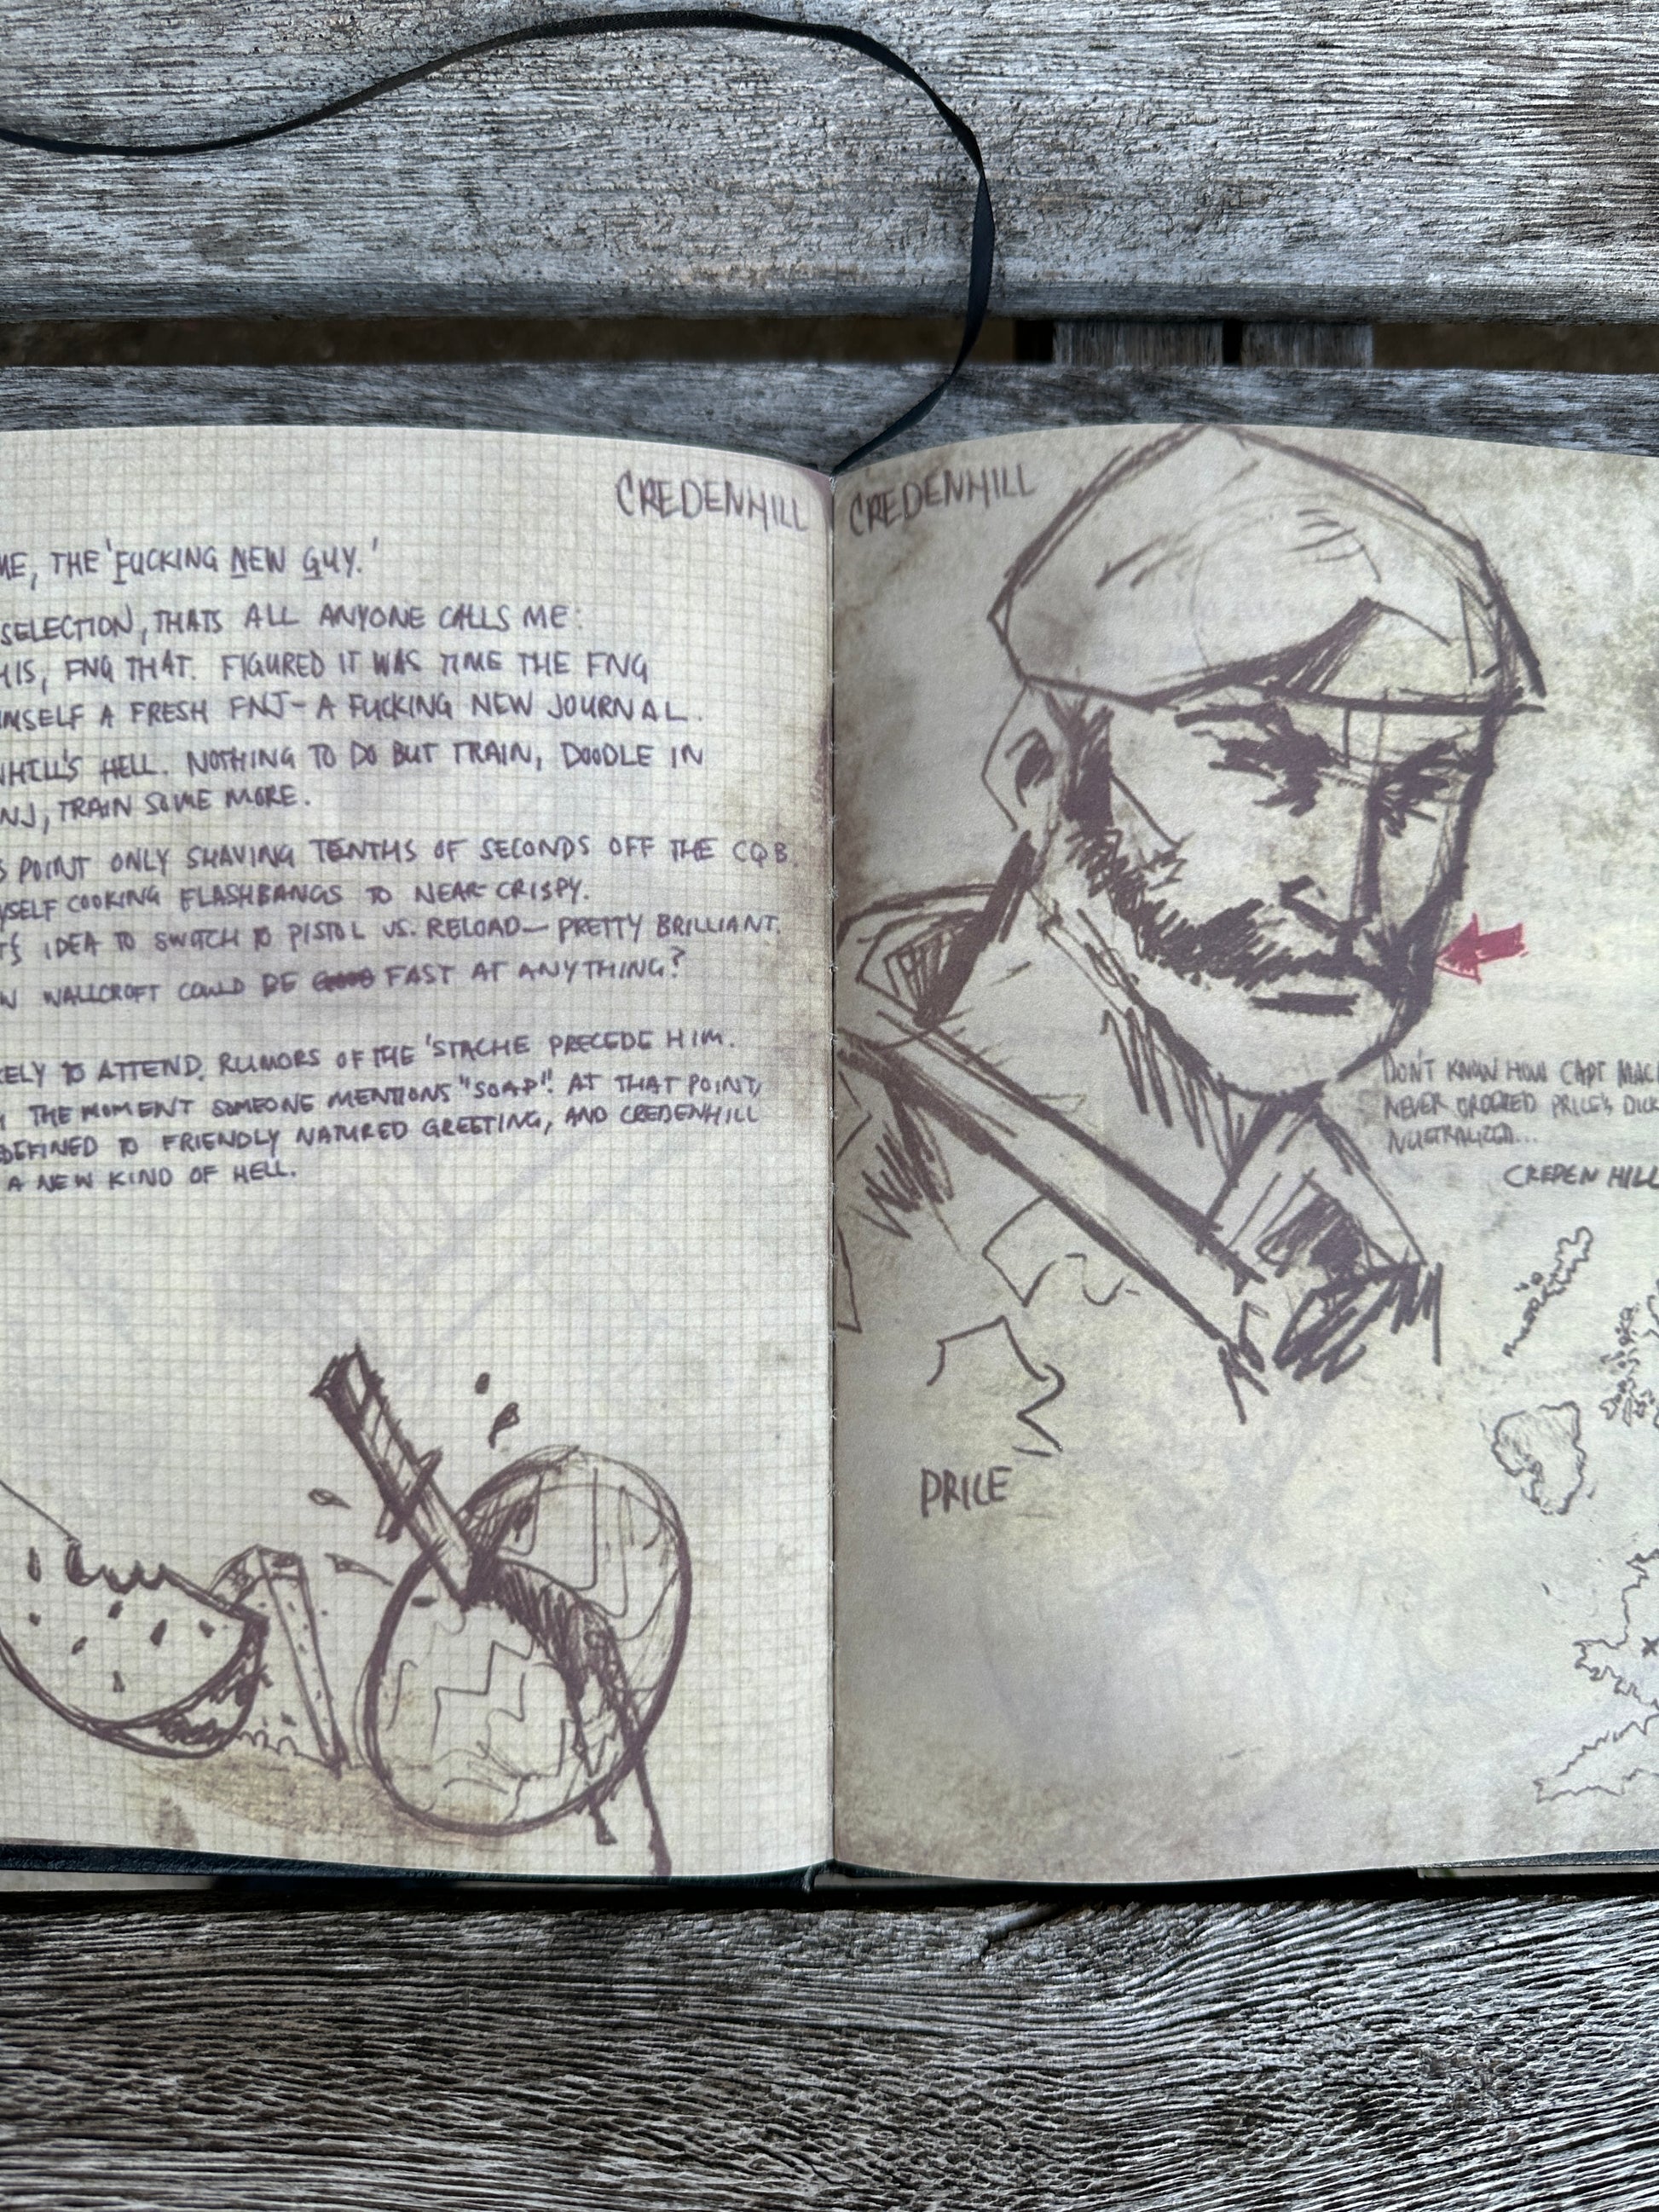 CREDENHILL
ME, THE 'FUCKING NEW GUY.'
SELECTION, THATS ALL ANYONE CALLS ME:
HIS, FNG THAT. FIGURED IT WAS TIME THE FNG
IMSELF A FRESH FNJ- A FUCKING NEW JOURNAL.
NHILL'S HELL. NOTHING TO DO BUT TRAIN, DOODLE IN
NJ, TRAIN SOME MORE.
S POINT ONLY SHAVING TENTHS OF SECONDS OFF THE CQB.
YSELF COOKING FLASHBANGS TO NEAR-CRISPY.
T'S IDEA TO SWITCH TO PISTOL VS. RELOAD— PRETTY BRILLIANT.
W WALLCROFT COULD BE FAST AT ANYTHING?
ELY TO ATTEND. RUMORS OF THE 'STACHE PRECEDE HIM.
THE MOMENT SOMEONE MENTIONS "SOAP". AT THAT POINT,
DEFINED TO FRIENDLY NATURED GREETING, AND CREDENHILL
A NEW KIND OF HELL.
CREDENHILL
DON'T KNOW HOW CAPT MAC
NEVER ORDERED PRICE'S DICK
NUETRALIZED...
CREDEN HILL
PRICE